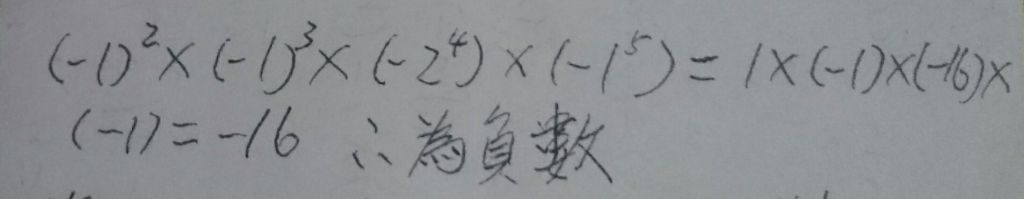 (-1)²×(-1)³×(-2⁴)×(-1⁵)=1×(-1)×(-16)×
(-1)=-16 ∴為負數